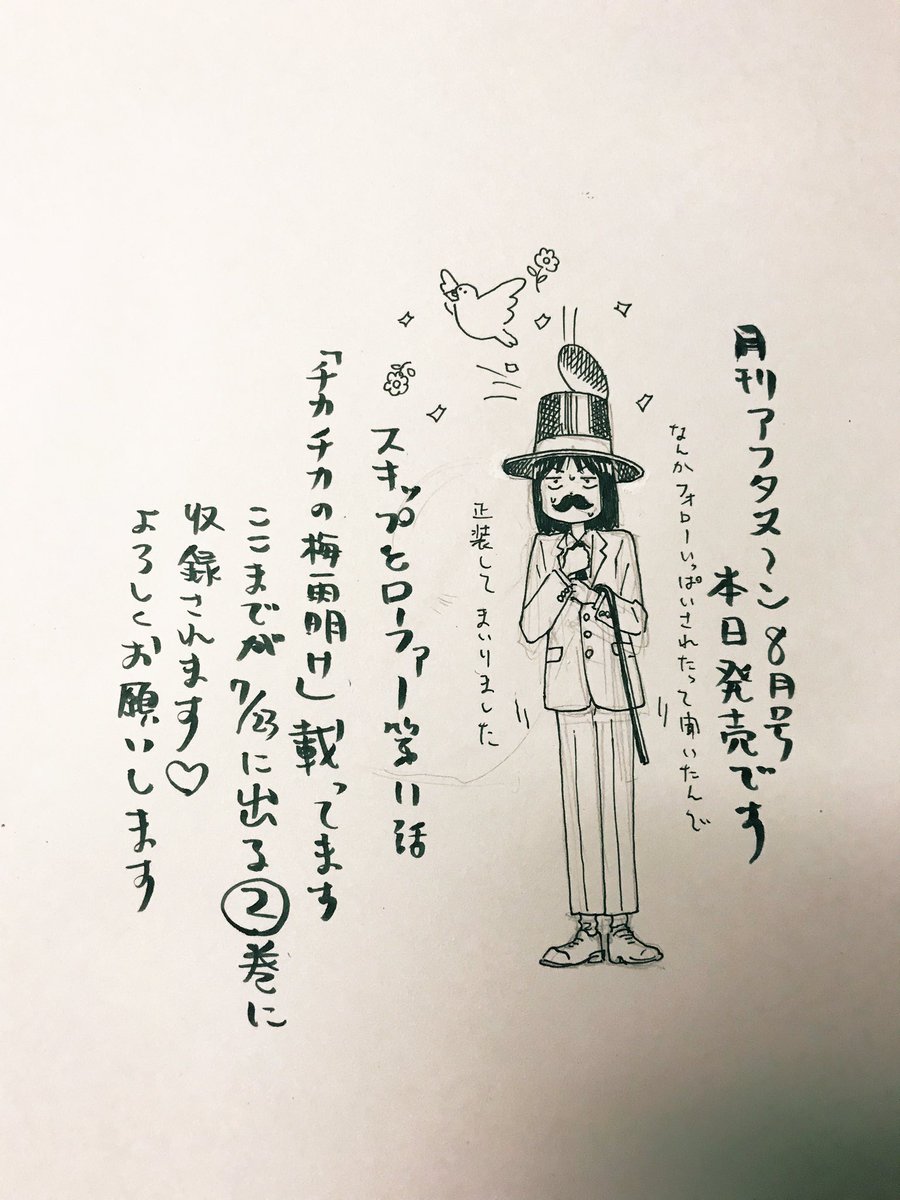 月刊アフタヌーン8月号
本日発売です
なんかフォローいっぱいされたって聞いたんで
正装してまいりました
スキップとローファー第11話
「チカチカの梅雨明け」載ってます
ここまでが7/23に出る②巻に
収録されます♡
よろしくお願いします